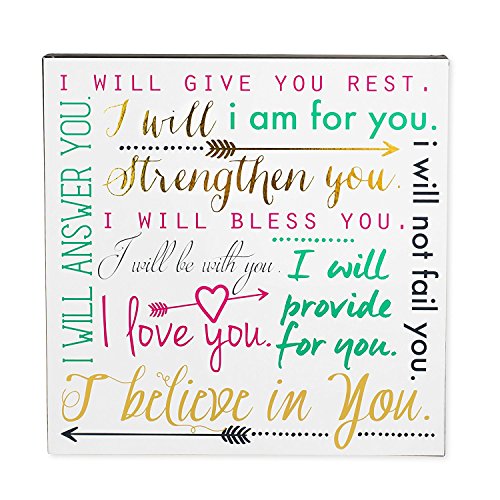 I WILL GIVE YOU REST.
I will
i am for you.
Strengthen you.
I WILL BLESS YOU.
I will be with you.
I will
provide
for you.
I love you.
I believe in You.
I WILL ANSWER YOU.
i will not fail you.